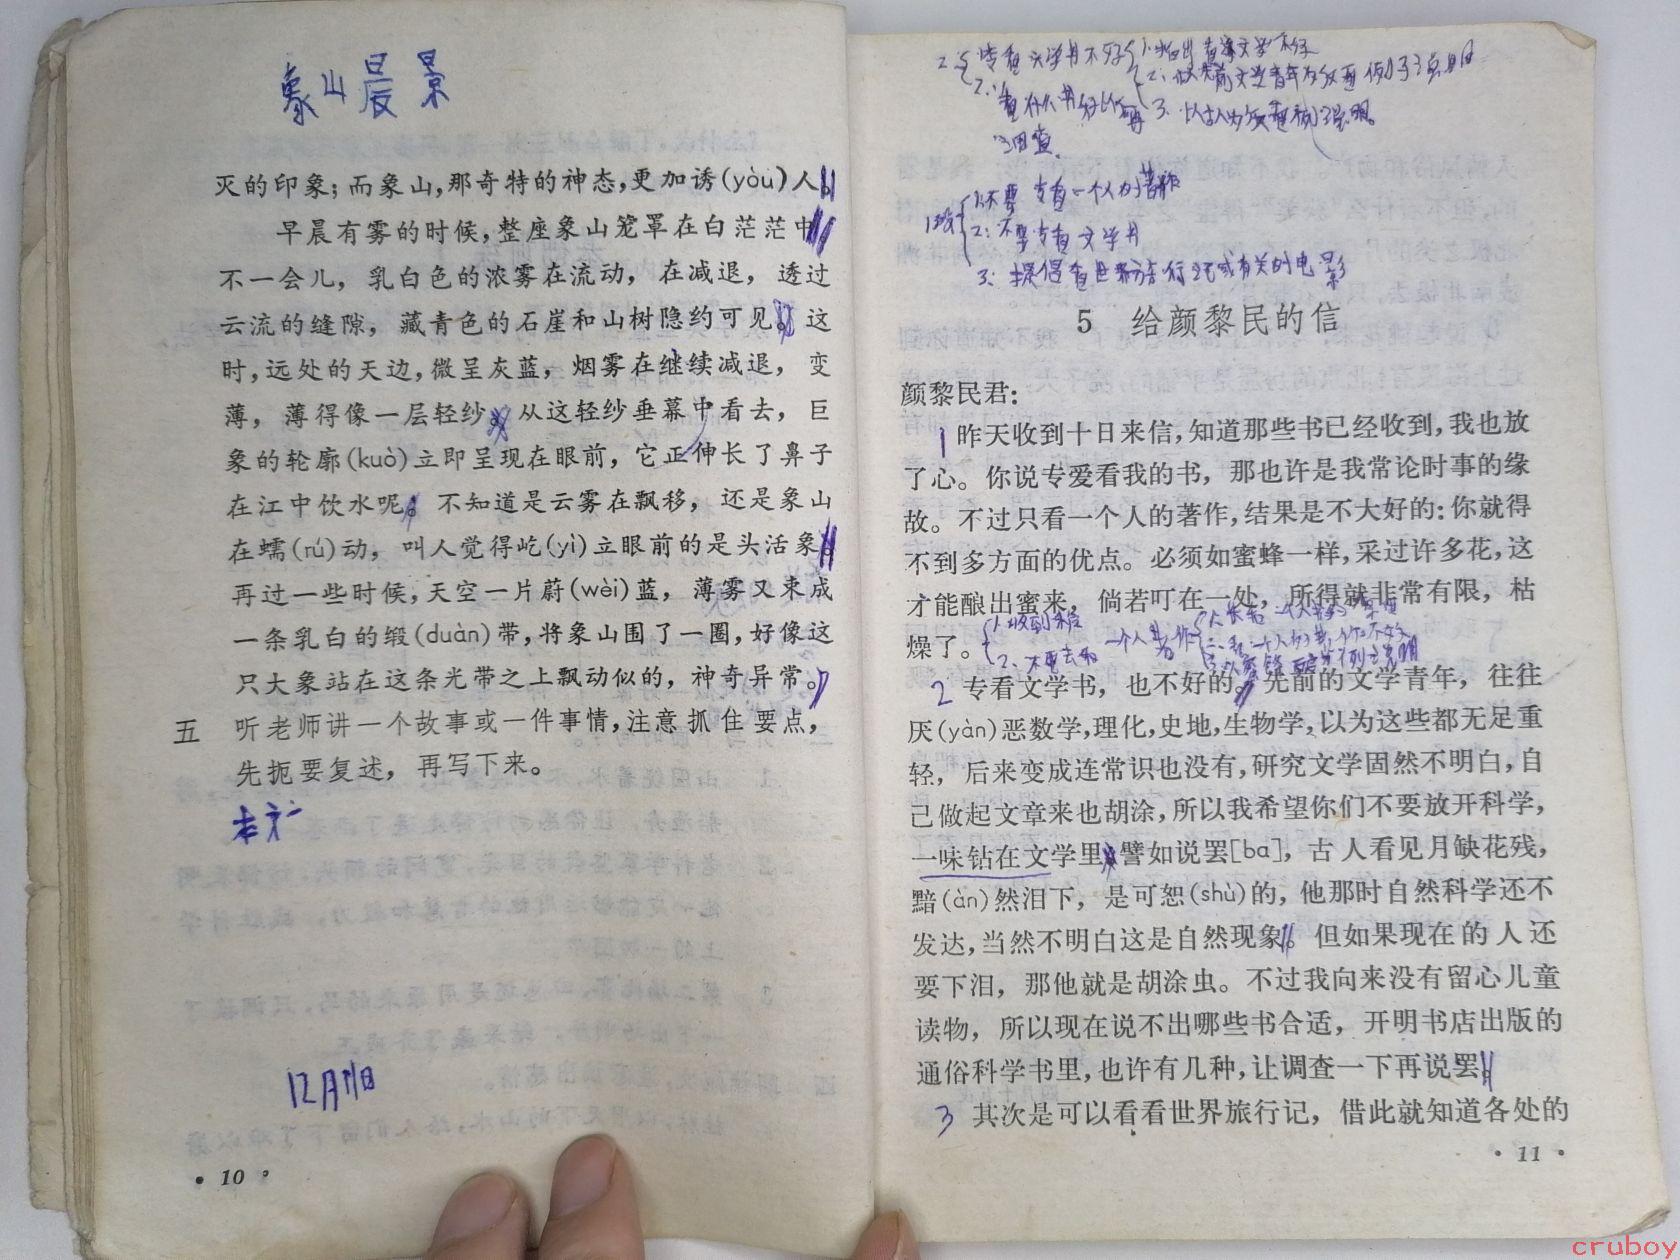 象山晨景
灭的印象；而象山，那奇特的神态，更加诱(yòu)人。
早晨有雾的时候，整座象山笼罩在白茫茫中，
不一会儿，乳白色的浓雾在流动，在减退，透过
云流的缝隙，藏青色的石崖和山树隐约可见。这
时，远处的天边，微呈灰蓝，烟雾在继续减退，变
薄，薄得像一层轻纱。从这轻纱垂幕中看去，巨
象的轮廓(kuò)立即呈现在眼前，它正伸长了鼻子
在江中饮水呢。不知道是云雾在飘移，还是象山
在蠕(rú)动，叫人觉得屹(yì)立眼前的是头活象。
再过一些时候，天空一片蔚(wèi)蓝，薄雾又束成
一条乳白的缎(duàn)带，将象山围了一圈，好像这
只大象站在这条光带之上飘动似的，神奇异常。
五 听老师讲一个故事或一件事情，注意抓住要点，
先扼要复述，再写下来。
12月
• 10 •
2.
1.
2.
3.
1.不要专看一个人的著作
2.不要专看文学书
3.提倡看世界旅行记或有关的电影
5 给颜黎民的信
颜黎民君：
1 昨天收到十日来信，知道那些书已经收到，我也放
了心。你说专爱看我的书，那也许是我常论时事的缘
故。不过只看一个人的著作，结果是不大好的：你就得
不到多方面的优点。必须如蜜蜂一样，采过许多花，这
才能酿出蜜来，倘若叮在一处，所得就非常有限，枯
燥了。
2 专看文学书，也不好的。先前的文学青年，往往
厌(yàn)恶数学，理化，史地，生物学，以为这些都无足重
轻，后来变成连常识也没有，研究文学固然不明白，自
己做起文章来也胡涂，所以我希望你们不要放开科学，
一味钻在文学里。譬如说罢[ba]，古人看见月缺花残，
黯(àn)然泪下，是可恕(shù)的，他那时自然科学还不
发达，当然不明白这是自然现象。但如果现在的人还
要下泪，那他就是胡涂虫。不过我向来没有留心儿童
读物，所以现在说不出哪些书合适，开明书店出版的
通俗科学书里，也许有几种，让调查一下再说罢。
3 其次是可以看看世界旅行记，借此就知道各处的
• 11 •
cruboy